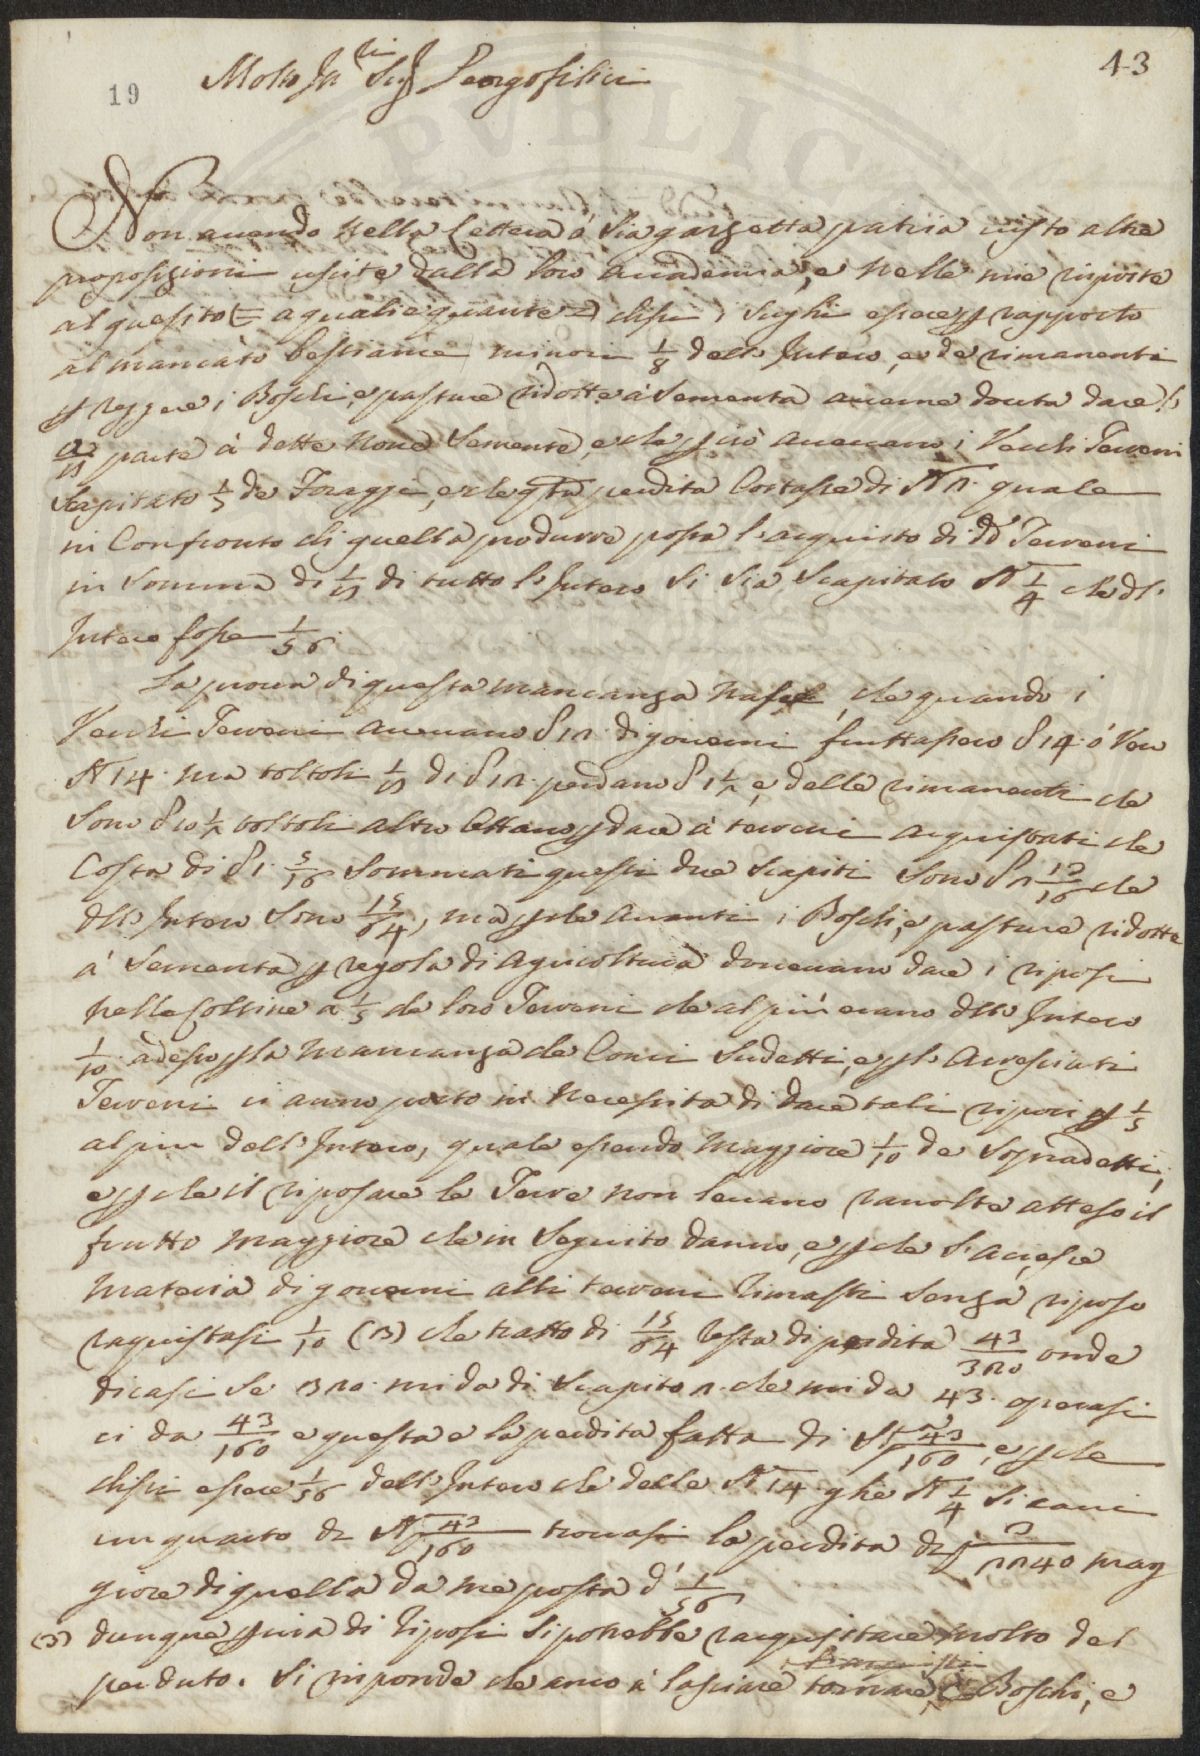 43
19
Molto Ill Sig Georgofilici
Non avendo nella Lettera à Sia gazzetta patria visto altre
proposizioni uscite dalla loro Accademia, e nelle mie risposte
al quesito (= a quali e quante =) dissi i Sughi essere p rapporto
al mancato bestiame minori 1/8 dell Intero, e de rimanenti
p reggere i Boschi, e pasture ridotte à Sementa averne dovuta dare
parte à dette nove Semente, e che p ciò avevano i Vecchi Terreni
Scapitato 1/5 de Foraggi, e che qta perdita Costasse di quale
in Confronto di quella produrre possa l'acquisto di dd Terreni
in Somma di di tutto l'Intero Si Sia Scapitato 1/4 che dl
Intero fosse 1/56
La prova di questa mancanza nasce, che quando i
Vecchi Terreni avevano 12 di governi fruttassero 14 ò Vero
14 ma toltoli 1/8 di 12 perdano 1 1/2 e delle rimanenti che
Sono 10 1/2 toltoli altro Ottavo p dare à terreni acquistati che
Costa di 1 5/16 Sommati questi due Scapiti Sono 2 13/16 che
dll Intero Sono 15/64, ma p che avanti i Boschi, e pasture ridotte
à Sementa p regola di Agricoltura dovevano dare i riposi
nelle Colline a 1/5 de loro Terreni che al più erano dllo Intero
1/10 adesso p la mancanza de Conci Sudetti, e p l'Accresciuti
Terreni ci anno posto in Necessità di dare tali riposi p 1/5
al piu dell'Intero, quale essendo Maggiore 1/10 de Sopradetti,
e p che il riposare le Terre non levano raccolte atteso il
frutto maggiore che in Seguito danno, e p che S'accresce
Materia di governi alli terreni Rimasti Senza riposo
raquistasi 1/10 (B) che tratto di 15/64 resta di perdita 43/320 onde
dicasi Se 320 mi da di Scapito 2 che mi da 43 operasi
ci da 43/160 e questa e la perdita fatta di 43/160, e p che
dissi essere 1/56 dell'Intero che delle 14 ghe 1/4 Si cavi
un quarto da 43/160 trovasi la perdita di 3/2240 mag
giore di quella da me posta d' 1/56
dunque p via di Riposi Si potrebbe raquistare molto del
perduto. Si risponde che anco à lasciare tornare Boschi, e